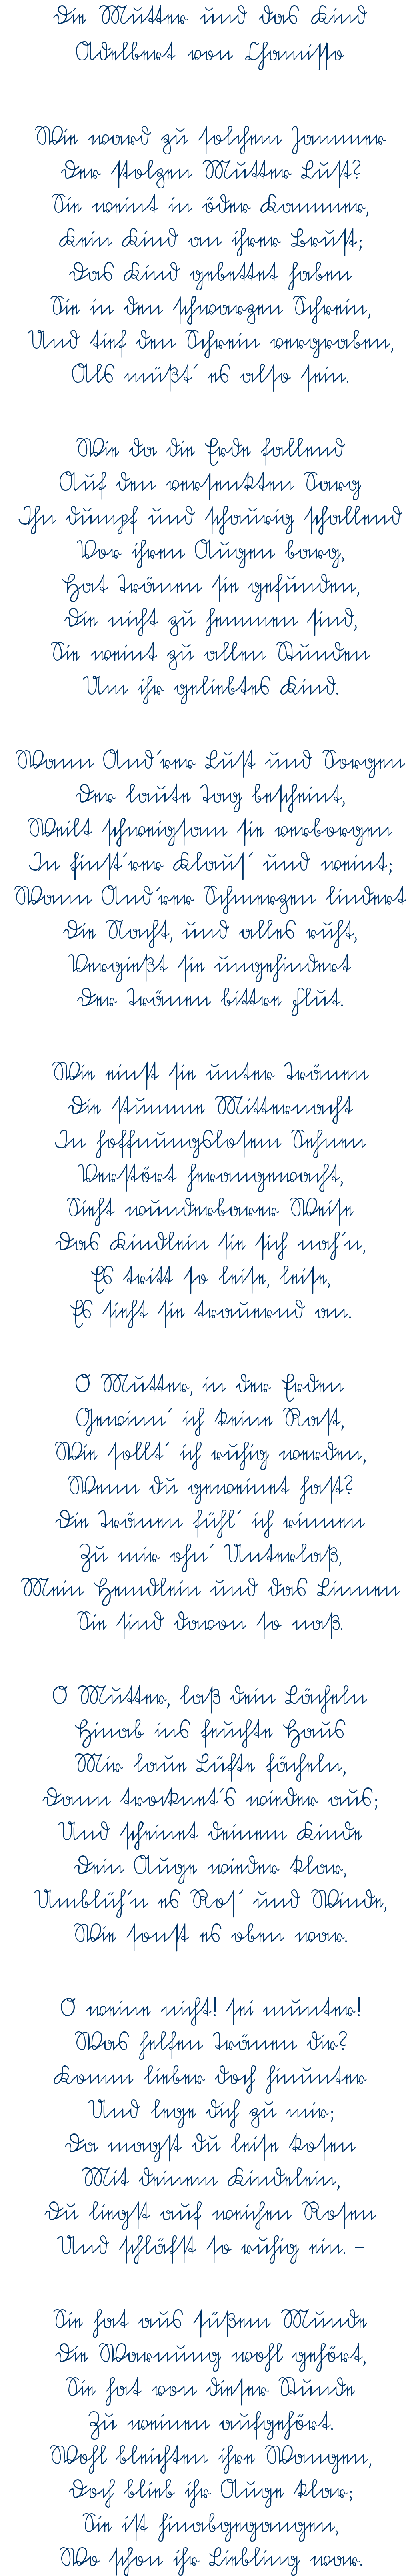 Die Mutter und das Kind
Adelbert von Chamisso
Wie ward zu solchem Jammer
Der stolzen Mutter Lust?
Sie weint in öder Kammer,
Kein Kind an ihrer Brust;
Das Kind gebettet haben
Sie in den schwarzen Schrein,
Und tief den Schrein vergraben,
Als müßt´ es also sein.
Wie da die Erde fallend
Auf den versenkten Sarg
Ihn dumpf und schaurig schallend
Vor ihren Augen barg,
Hat Tränen sie gefunden,
Die nicht zu hemmen sind,
Sie weint zu allen Stunden
Um ihr geliebtes Kind.
Wann And´rer Lust und Sorgen
Der laute Tag bescheint,
Weilt schweigsam sie verborgen
In finst´rer Klaus´ und weint;
Wann And´rer Schmerzen lindert
Die Nacht, und alles ruht,
Vergießt sie ungehindert
Der Tränen bittre Flut.
Wie einst sie unter Tränen
Die stumme Mitternacht
In hoffnungslosem Sehnen
Verstört herangewacht,
Sieht wunderbarer Weise
Das Kindlein sie sich nah´n,
Es tritt so leise, leise,
Es sieht sie trauernd an.
O Mutter, in der Erden
Gewinn´ ich keine Rast,
Wie sollt´ ich ruhig werden,
Wenn du geweinet hast?
Die Tränen fühl´ ich rinnen
Zu mir ohn´ Unterlaß,
Mein Hemdlein und das Linnen
Sie sind davon so naß.
O Mutter, laß dein Lächeln
Hinab ins feuchte Haus
Mir laue Lüfte fächeln,
Dann trocknet´s wieder aus;
Und scheinet deinem Kinde
Dein Auge wieder klar,
Umblüh´n es Ros´ und Winde,
Wie sonst es oben war.
O weine nicht! sei munter!
Was helfen Tränen dir?
Komm lieber doch hinunter
Und lege dich zu mir;
Da magst du leise kosen
Mit deinem Kindelein,
Du liegst auf weichen Rosen
Und schläfst so ruhig ein. –
Sie hat aus süßem Munde
Die Warnung wohl gehört,
Sie hat von dieser Stunde
Zu weinen aufgehört.
Wohl bleichten ihre Wangen,
Doch blieb ihr Auge klar;
Sie ist hinabgegangen,
Wo schon ihr Liebling war.